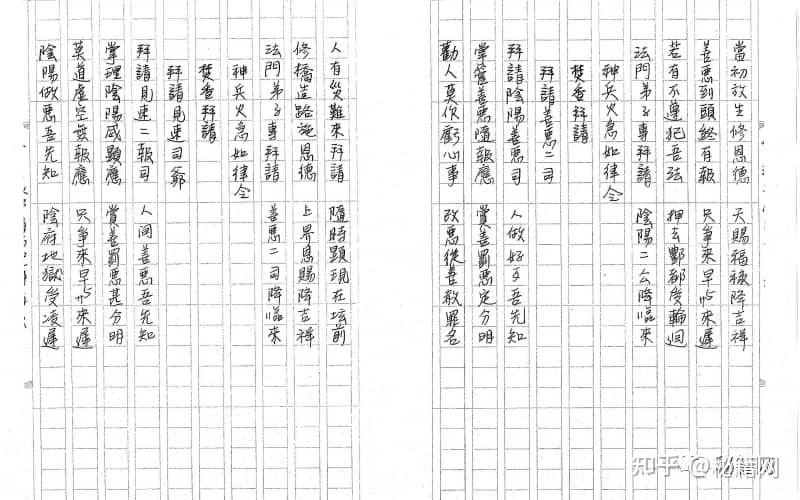 當初放生修恩德 天賜福祿降吉祥
善惡到頭終有報 只爭來早与來遲
若有不遵犯吾法 押去酆都受輪迴
法門弟子專拜請 陰陽二公降臨來
神兵火急如律令
焚香拜請
拜請善惡二司
拜請陰陽善惡司 人做好歹吾先知
掌管善惡隨報應 賞善罰惡定分明
勸人莫作虧心事 改惡從善赦罪名
人有災難來拜請 隨時顯現在坛前
修橋造路施恩德 上界恩賜降吉祥
法門弟子專拜請 善惡二司降臨來
神兵火急如律令
焚香拜請
拜請見速司爺
拜請見速二報司 人间善惡吾先知
掌理陰陽威顯應 賞善罰惡甚分明
莫道虛空無報應 只爭來早与來遲
陰陽做惡吾先知 陰府地獄受凌遲
知乎 @秘籍网